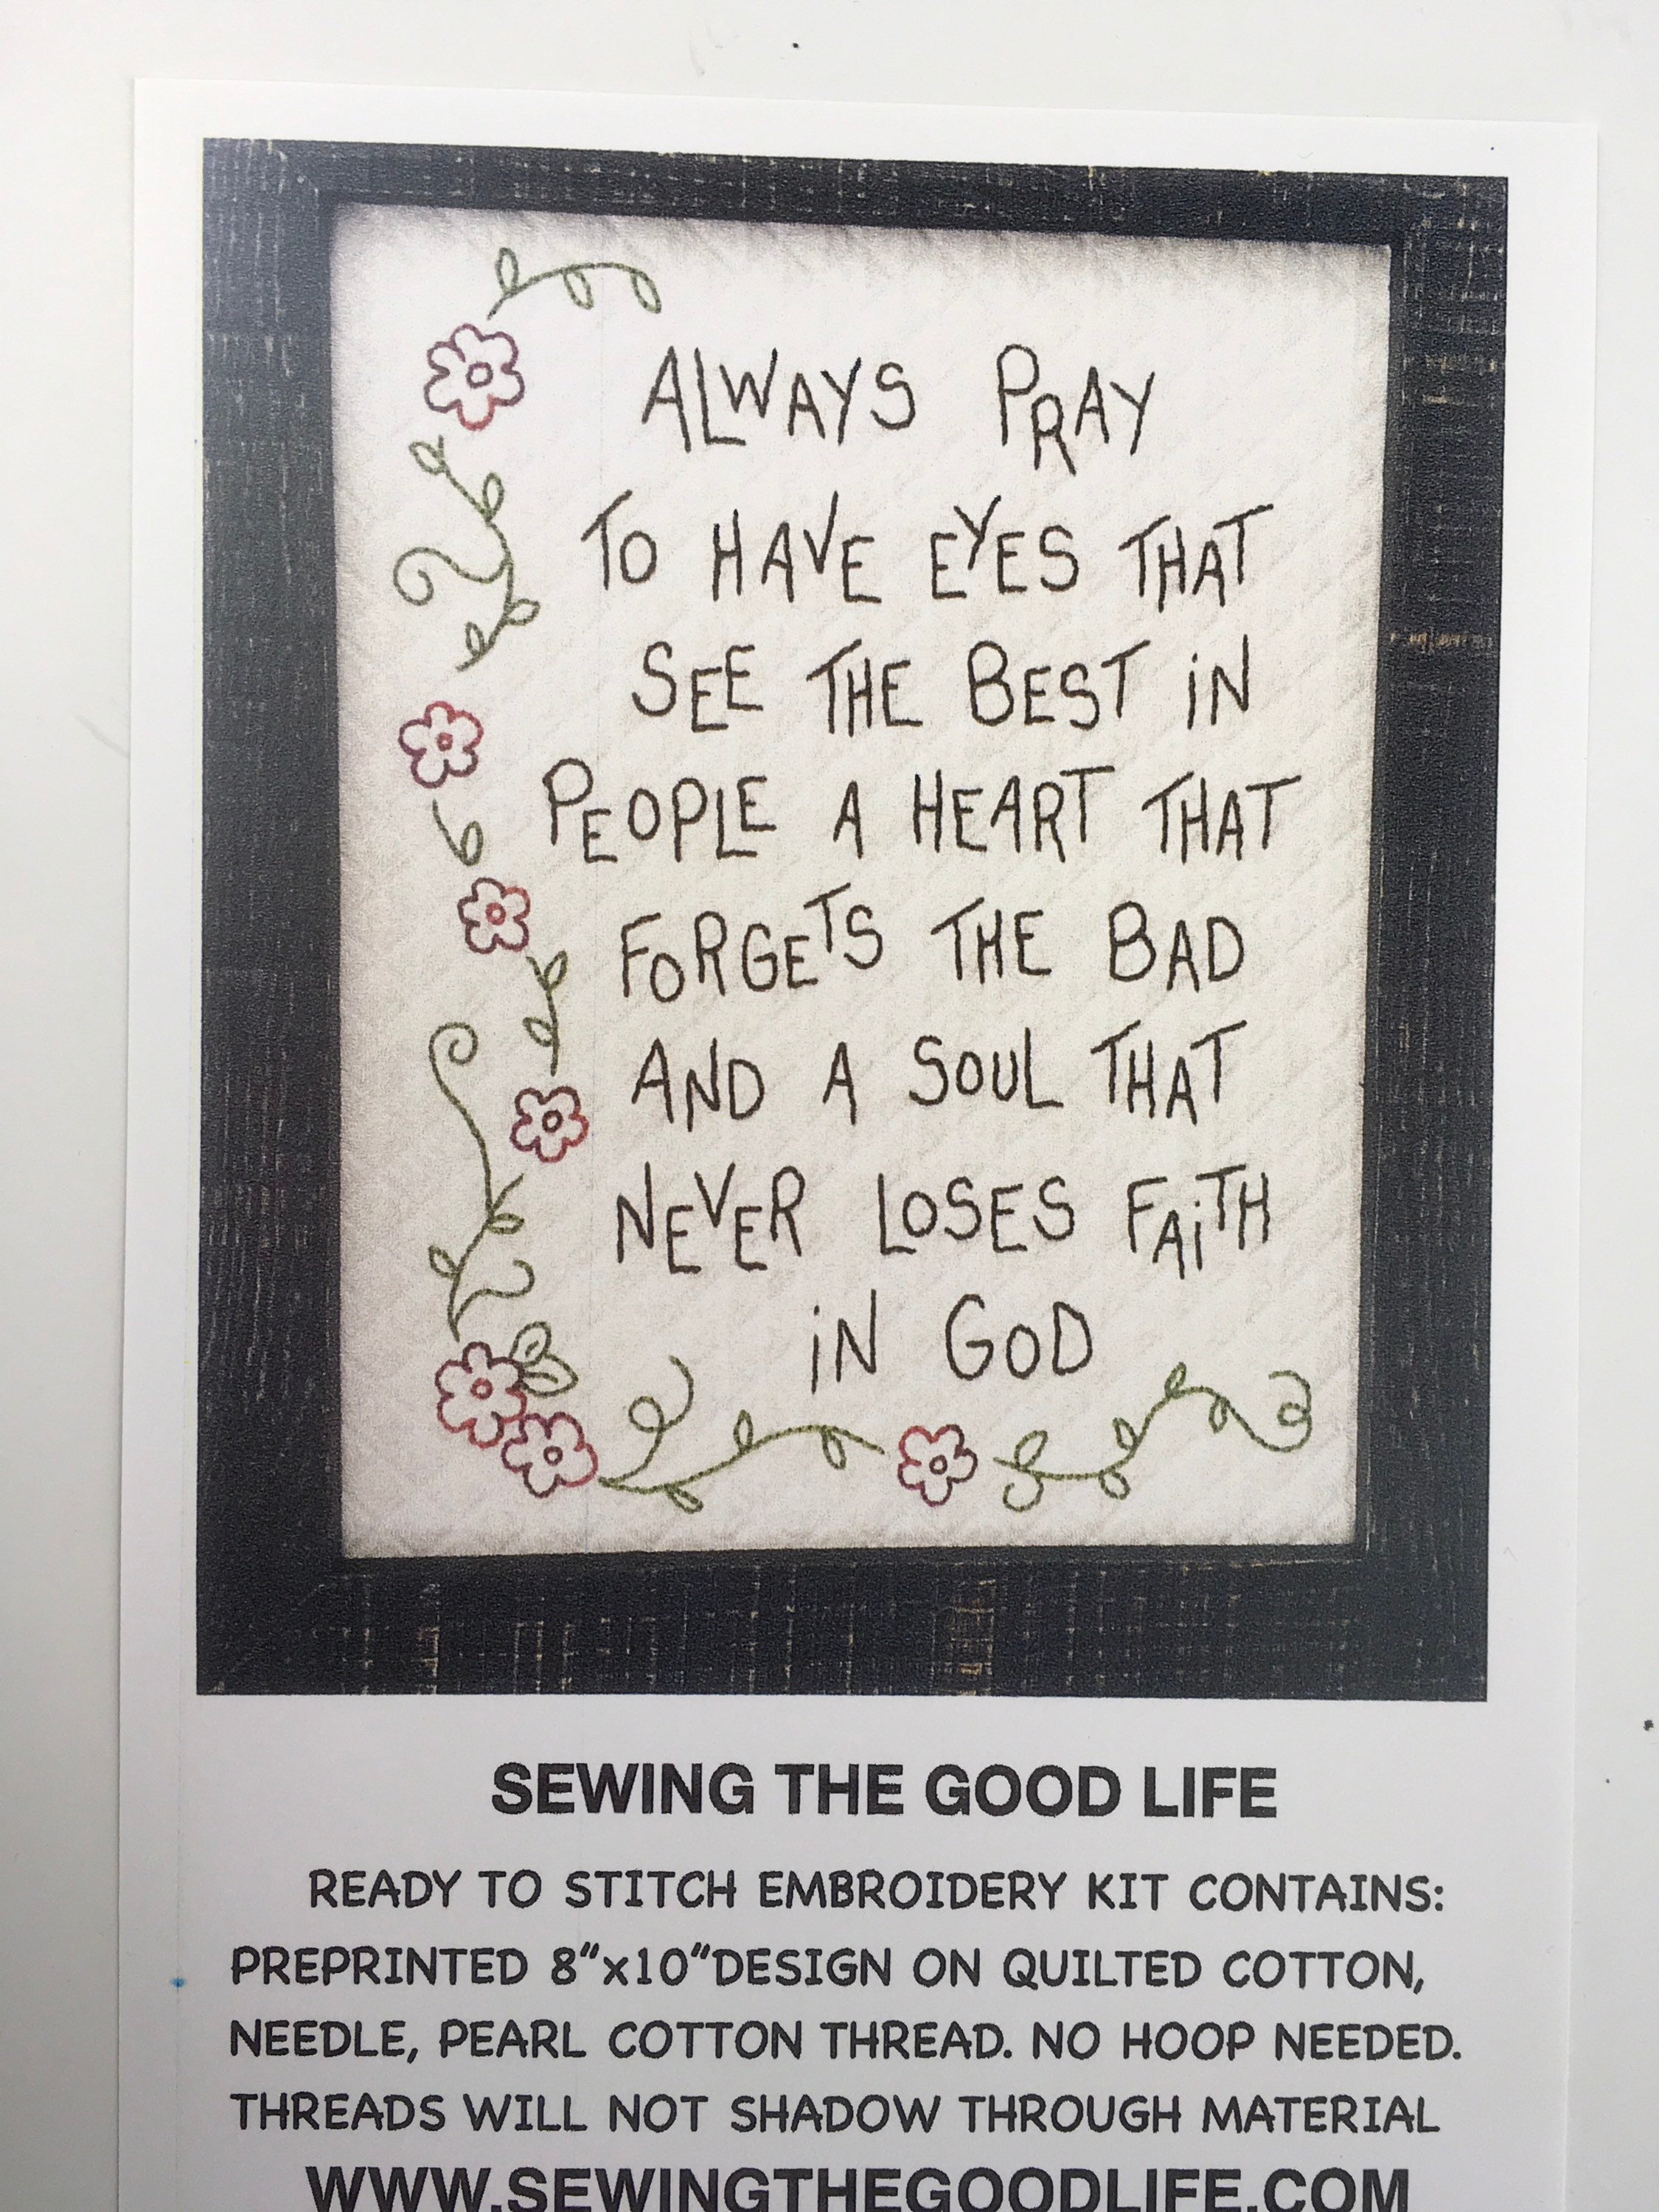 ALWAYS PRAY
TO HAVE EYES THAT
SEE THE BEST iN
PEOPLE A HEART THAT
FORGETS THE BAD
AND A SOUL THAT
NEVER LOSES FAiTH
iN GOD
SEWING THE GOOD LIFE
READY TO STITCH EMBROIDERY KIT CONTAINS:
PREPRINTED 8"x10"DESIGN ON QUILTED COTTON,
NEEDLE, PEARL COTTON THREAD. NO HOOP NEEDED.
THREADS WILL NOT SHADOW THROUGH MATERIAL
WWW.SEWINGTHEGOODLIFE.COM